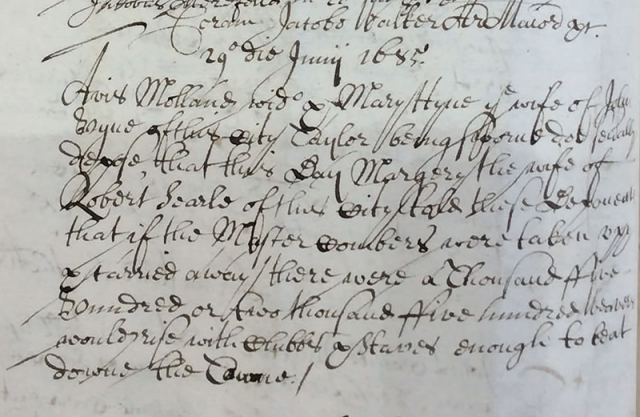 Coram Jacobo Walter Ar Maiore
29º die Junij 1685.
Avis Molland wid° & Mary Hyne yᵉ wife of John
Hyne of this City Taylor being sworne doe severally
depose, that this Day Margery the wife of
Robert Searle of this City told these Deponents
that if the Master Combers were taken upp
& carried away / there were a Thousand ffive
Hundred or two thousand ffive hundred weavers
would rise with Clubbs & Staves enough to beat
downe the Towne. /